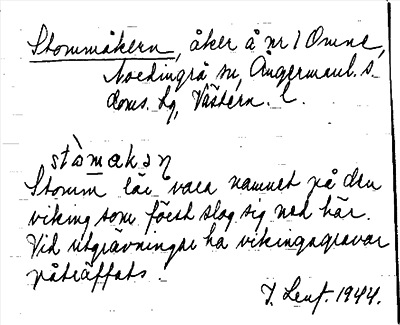 Stommåkern, åker å nr 1 Omne,
Nordingrå sn, Ångermanl. s.
doms. hg, Västern. l.
ståmakəɳ
Stomm lär vara namnet på den
viking som först slog sig ned här.
Vid utgrävningar ha vikingagravar
påträffats.
J. Lenf. 1944.